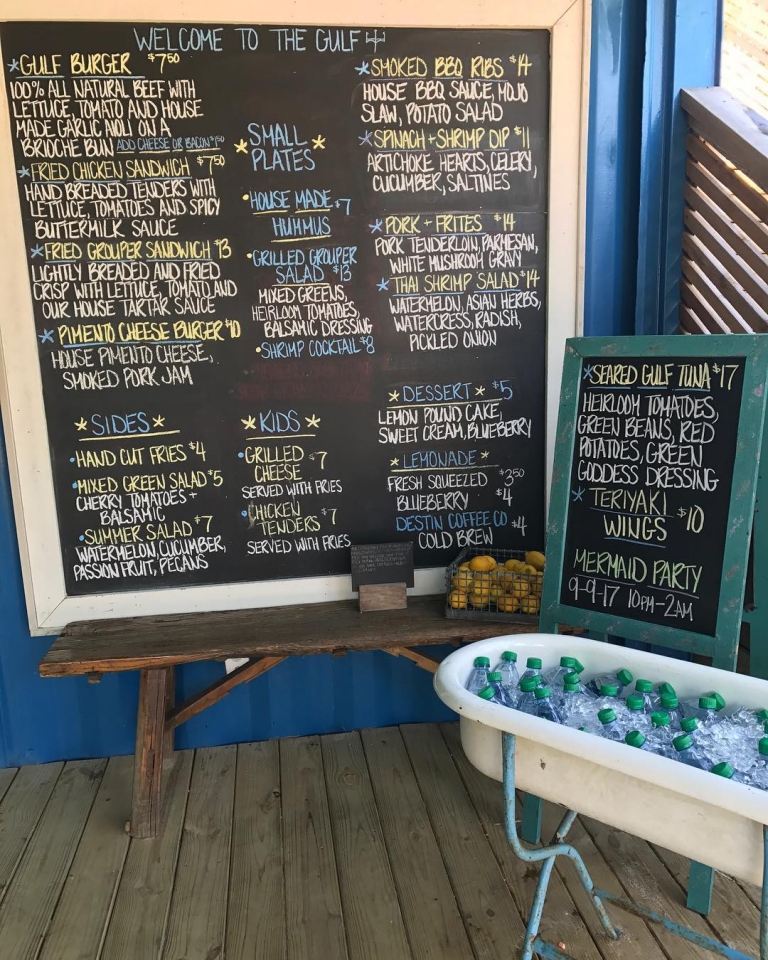 WELCOME TO THE GULF
*GULF BURGER $7⁵⁰
100% ALL NATURAL BEEF WITH
LETTUCE, TOMATO AND HOUSE
MADE GARLIC AIOLI ON A
BRIOCHE BUN ADD CHEESE OR BACON $1⁵⁰
*FRIED CHICKEN SANDWICH $7⁵⁰
HAND BREADED TENDERS WITH
LETTUCE, TOMATOES AND SPICY
BUTTERMILK SAUCE
*FRIED GROUPER SANDWICH $13
LIGHTLY BREADED AND FRIED
CRISP WITH LETTUCE, TOMATO, AND
OUR HOUSE TARTAR SAUCE
*PIMENTO CHEESE BURGER $10
HOUSE PIMENTO CHEESE,
SMOKED PORK JAM
*SIDES*
•HAND CUT FRIES $4
•MIXED GREEN SALAD $5
CHERRY TOMATOES +
BALSAMIC
•SUMMER SALAD $7
WATERMELON, CUCUMBER,
PASSION FRUIT, PECANS
*SMALL
PLATES*
•HOUSE MADE $7
HUMMUS
•GRILLED GROUPER
SALAD $13
MIXED GREENS,
HEIRLOOM TOMATOES,
BALSAMIC DRESSING
•SHRIMP COCKTAIL $8
*KIDS*
•GRILLED
CHEESE $7
SERVED WITH FRIES
•CHICKEN
TENDERS $7
SERVED WITH FRIES
*SMOKED BBQ RIBS $14
HOUSE BBQ SAUCE, MOJO
SLAW, POTATO SALAD
*SPINACH + SHRIMP DIP $11
ARTICHOKE HEARTS, CELERY,
CUCUMBER, SALTINES
*PORK + FRITES $14
PORK TENDERLOIN, PARMESAN,
WHITE MUSHROOM GRAVY
*THAI SHRIMP SALAD $14
WATERMELON, ASIAN HERBS,
WATERCRESS, RADISH,
PICKLED ONION
*DESSERT* $5
LEMON POUND CAKE,
SWEET CREAM, BLUEBERRY
*LEMONADE*
FRESH SQUEEZED $3⁵⁰
BLUEBERRY $4
DESTIN COFFEE CO $4
COLD BREW
*SEARED GULF TUNA $17
HEIRLOOM TOMATOES,
GREEN BEANS, RED
POTATOES, GREEN
GODDESS DRESSING
*TERIYAKI
WINGS $10
MERMAID PARTY
9-9-17 10PM-2AM